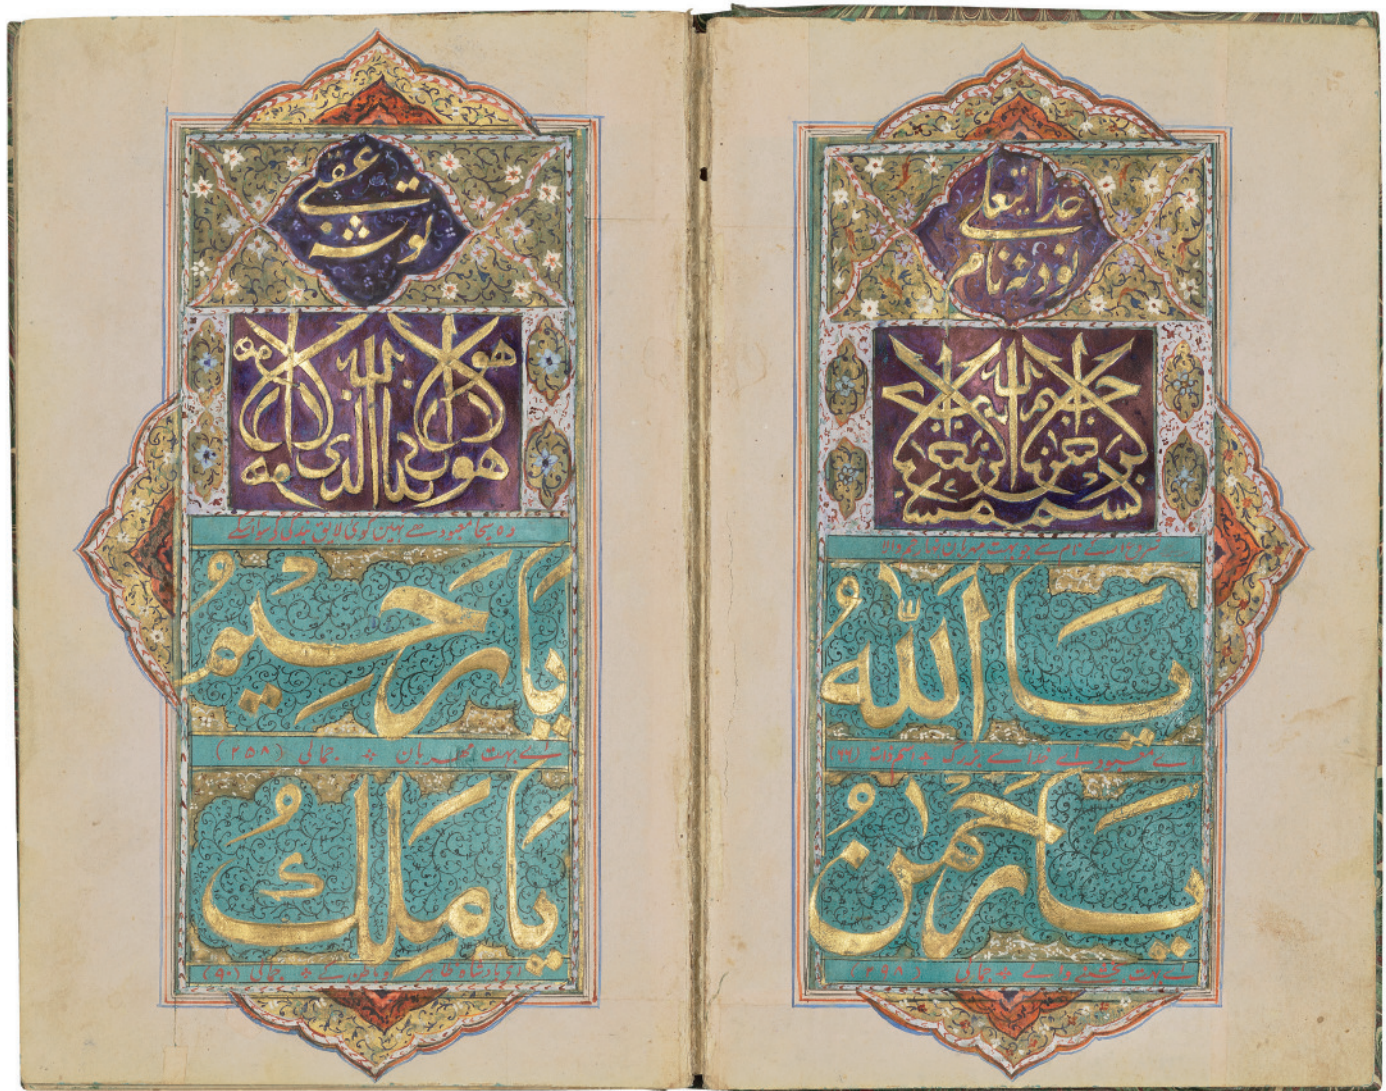 خدایتعلی
نودنہ نام
بسم الله الرحمن الرحیم
شروع اللہ کے نام سے جو بہت مہربان نہایت رحم والا
یَا اَللّٰهُ
اے معبود اے خدا اے بزرگ ⁘ اسم ذات (۶۶)
یَا رَحْمٰنُ
اے بہت بخشنے والے ⁘ جمالی (۲۹۸)
توشہ
عقبی
هو الله الذی لا اله الا هو
وہ سچا معبود ہے نہیں کوئی لایق بندگی کے سوا اسکے
یَا رَحِیْمُ
اے بہت مہربان ⁘ جمالی (۲۵۸)
یَا مَلِكُ
اے بادشاہ ظاہر و باطن کے ⁘ جمالی (۹۰)